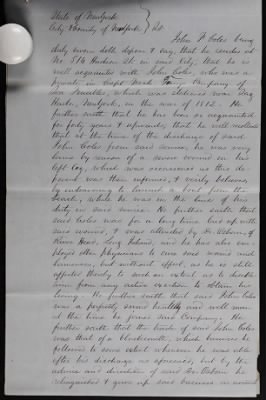 State of Newyork
City County of Newyork } SS.
John F Coles being
duly sworn doth depose & say, that he resides at
No. 516 Hudson St. in said City, that he is
well acquainted with John Coles, who was a
private in Capt Company of
Sea Fencibles, which was stationed near Sag
Harbor, Newyork, in the war of 1812. He
further saith that he has been so acquainted
for forty years & upwards, that he well recollects
that at the time of the discharge of said
John Coles from said service, he was very
lame by reason of a severe wound in his
left leg, which was occasioned as this de-
ponent was then informed, & verily believes,
by endeavoring to launch a boat from the
beach, while he was in the line of his
duty in said service. He further saith that
said Coles was for a long time laid up with
said wound, & was attended by Dr. Osborn, of
River Head, Long Island, and he has also em-
ployed other physicians to cure said wound and
lameness, but without effect, as he is still
affected thereby to such an extent as to disable
him from any active exertion to obtain his
living. He further saith that said John Coles
was a perfectly sound healthy and well man
at the time he joined said Company. He
further saith that the trade of said John Coles
was that of a blacksmith, which business he
followed to some extent whenever he was able
after his discharge as aforesaid, but by the
advice and direction of said Dr. Osborn he
relinquished & gave up said business